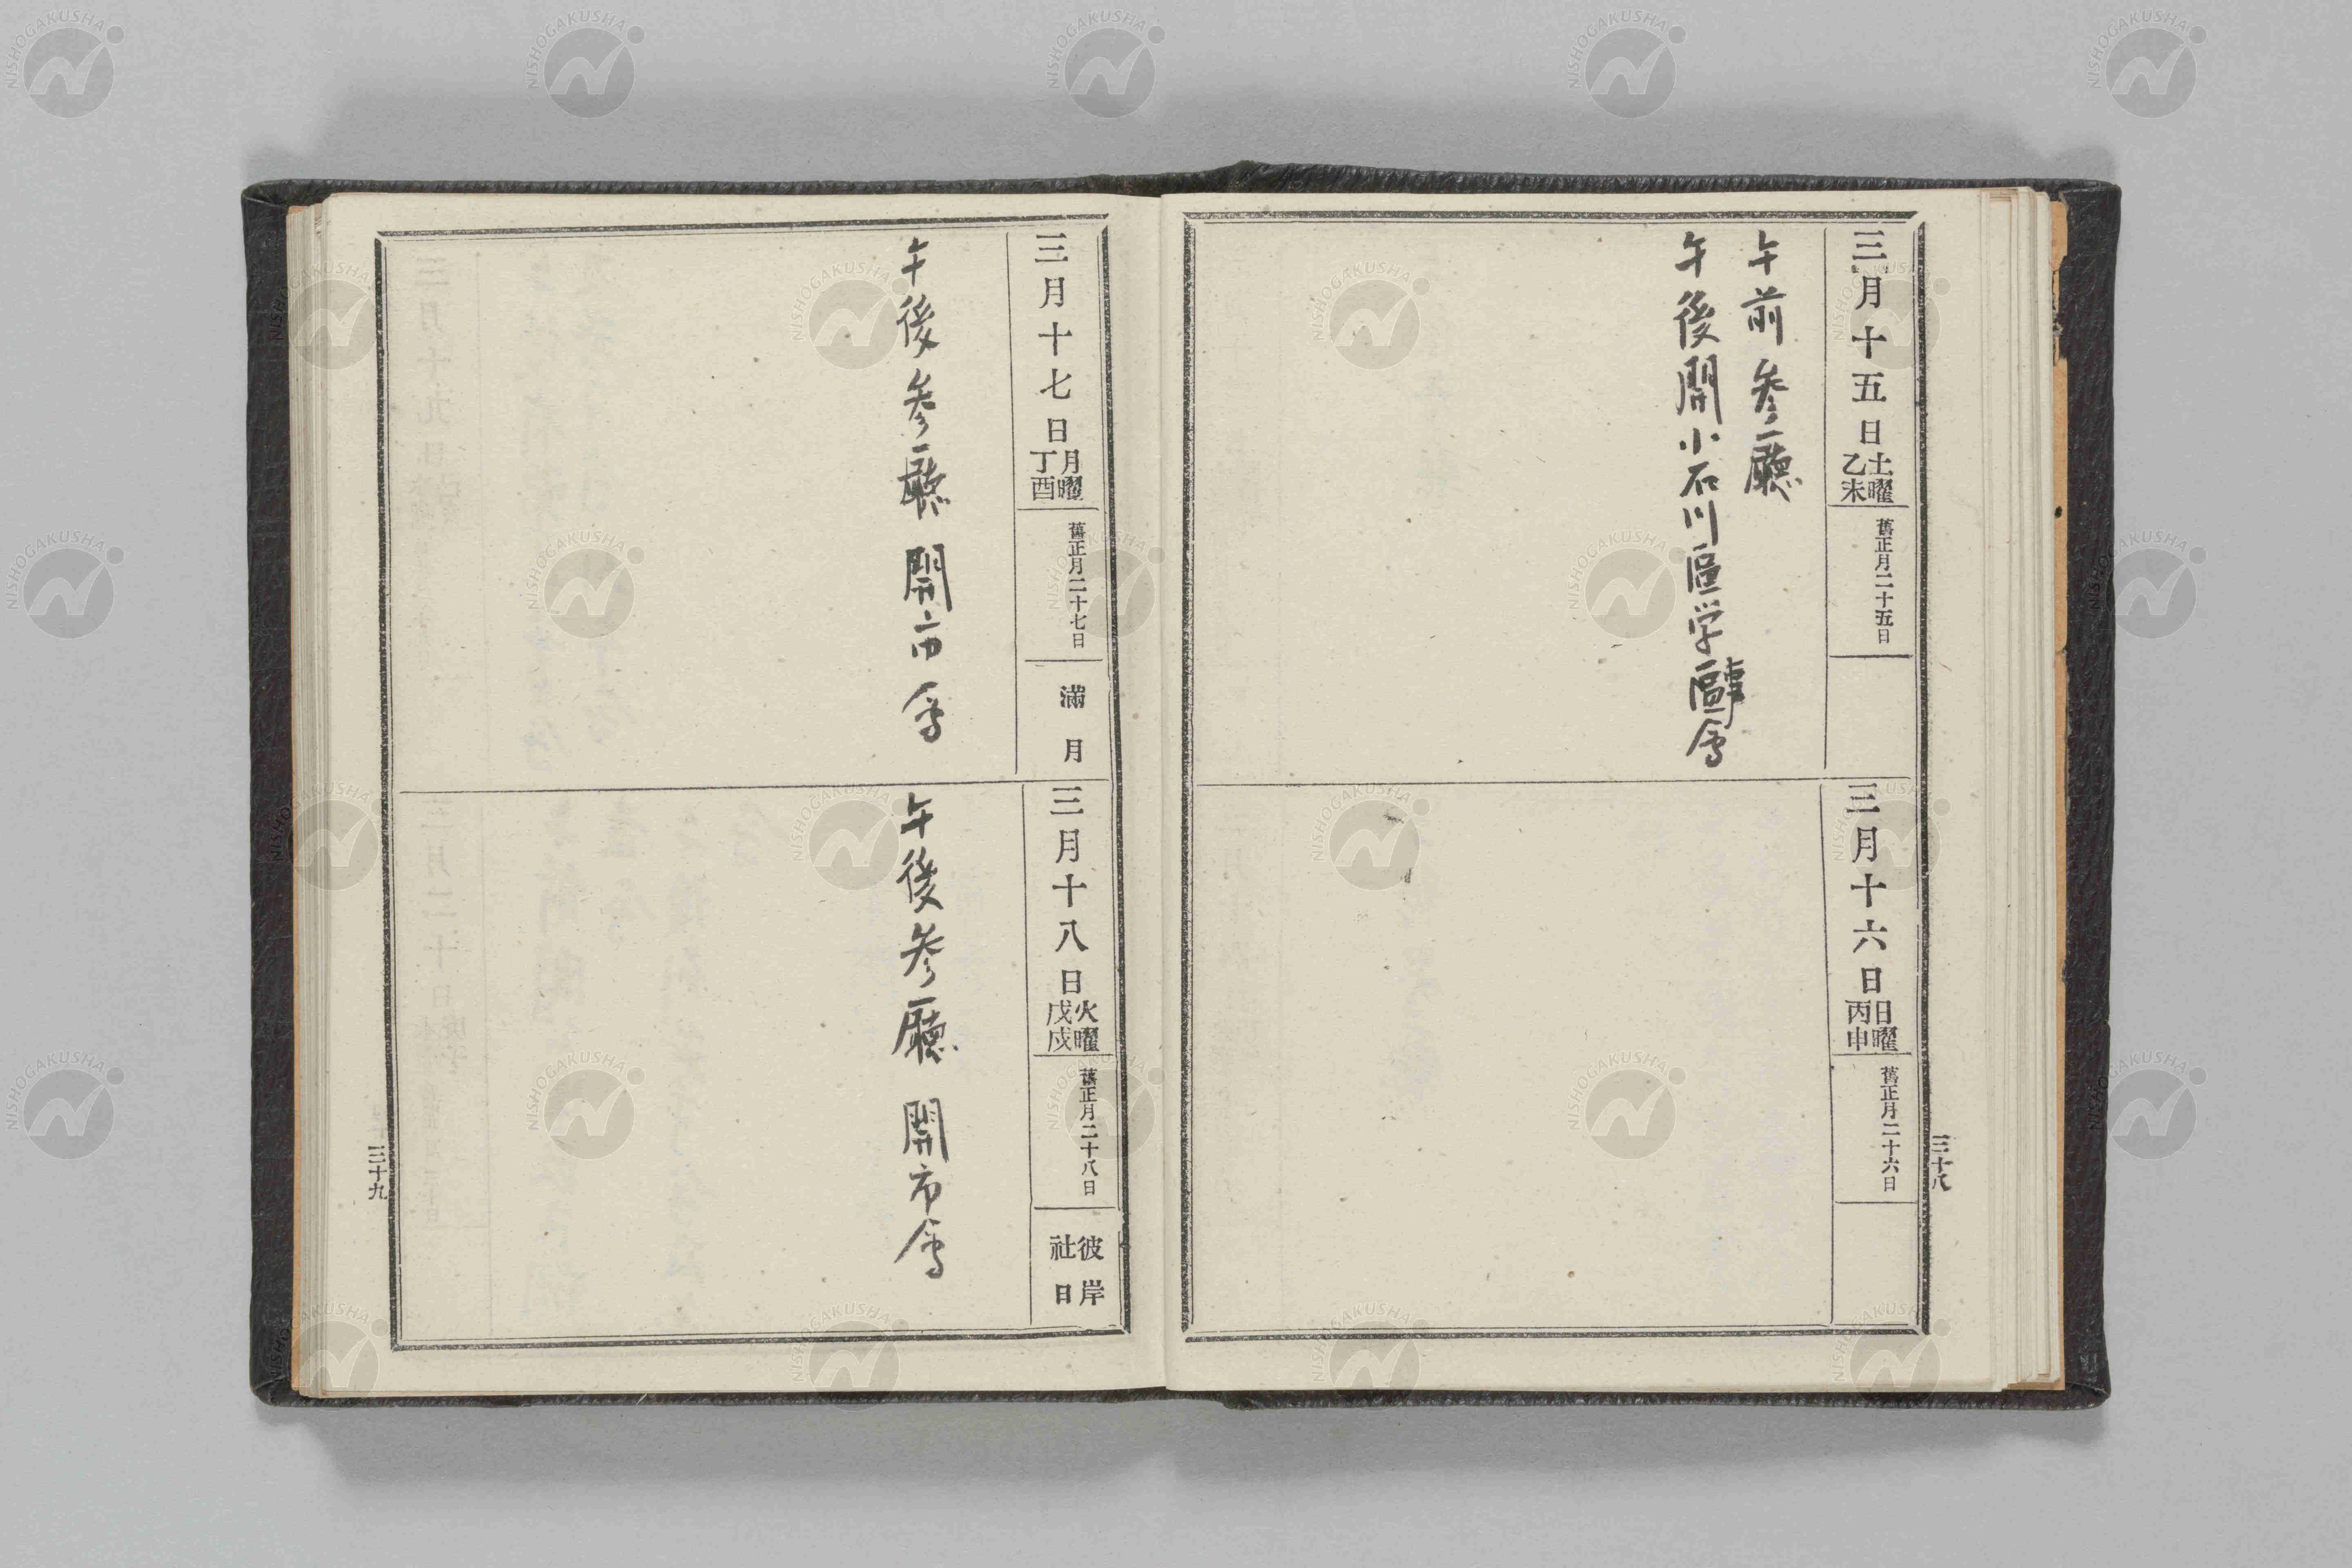 三月十五日
土曜
乙未
舊正月二十五日
午前参廳
午後開小石川區学會
三月十六日
日曜
丙申
舊正月二十六日
三十八
三月十七日
月曜
丁酉
舊正月二十七日
滿月
午後参廳 開市會
三月十八日
火曜
戊戌
舊正月二十八日
彼岸
社日
午後参廳 開市會
三十九
NISHOGAKUSHA